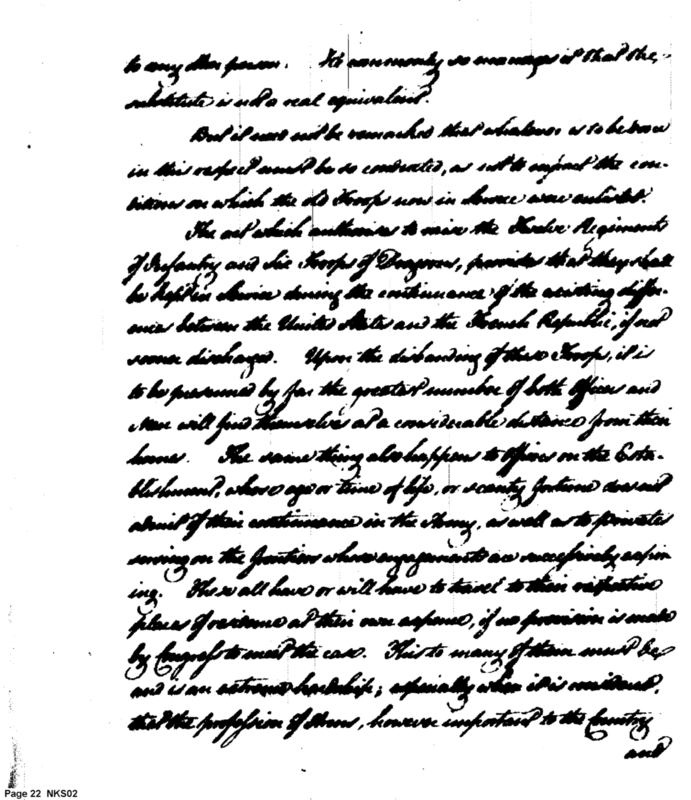 to any other person. It commonly so manages it that the
substitute is not a real equivalent.
But it need not be remarked that whatever is to be done
in this respect must be so conducted, as not to impact the con-
ditions on which the old Troops now in Service were enlisted.
The act which authorises to raise the Twelve Regiments
of Infantry and Six Troops of Dragoons, provides that they shall
be kept in Service during the continuance of the existing differ-
ences between the United States and the French Republic, if not
sooner discharged. Upon the disbanding of these Troops, it is
to be presumed by far the greatest number of both Officers and
Men will find themselves at a considerable distance from their
homes. The same thing also happens to Officers on the Esta-
blishment, whose age or time of life, or scanty fortune does not
admit of their continuance in the Army, as well as to privates
serving on the frontiers whose engagements are successively expir-
ing. These all have or will have to travel to their respective
places of residence at their own expense, if no provision is made
by Congress to meet the case. This to many of them must be
and is an extreme hardship; especially when it is considered,
that the profession of Arms, however important to the Country
and
Page 22 NKS02